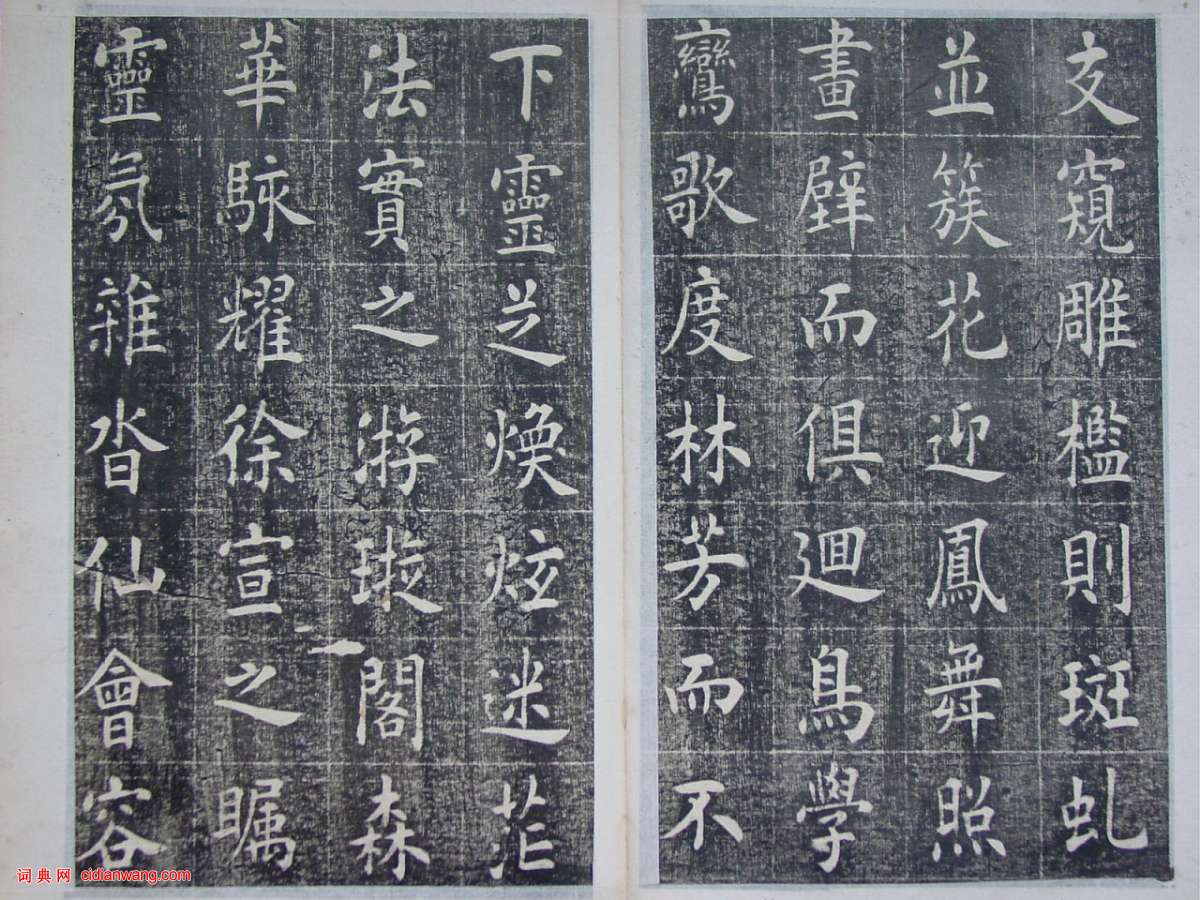 文窺雕檻則斑虬
並簇花迎鳳舞照
畫壁而俱迴鳥學
鸞歌度林芳而不
下靈芝煥炫迷茫
法實之游璇閣森
華駭耀徐宣之矚
靈氛雜沓仙會容
词典网 cidianwang.com